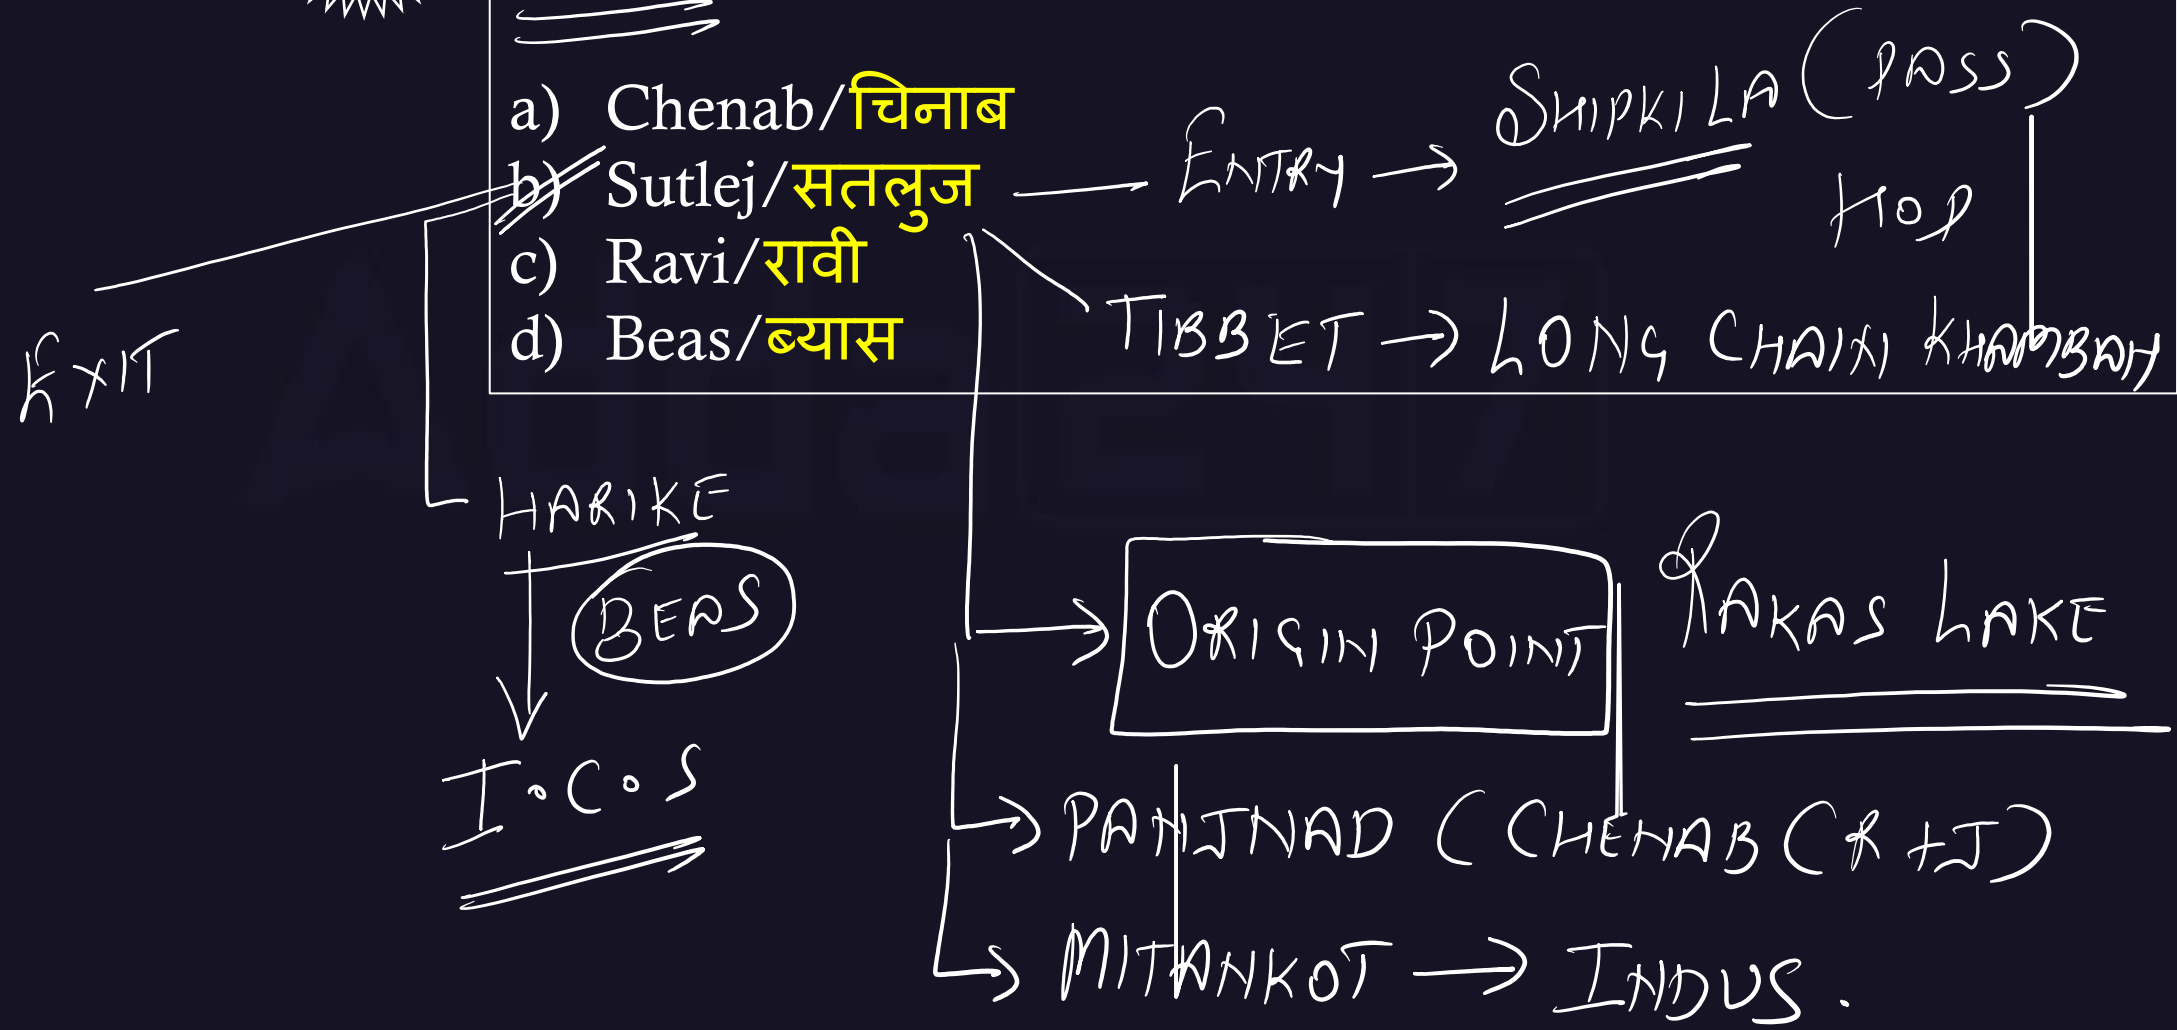 a) Chenab/चिनाब
b) Sutlej/सतलुज
c) Ravi/रावी
d) Beas/ब्यास
ENTRY → SHIPKILA (PASS)
HOP
TIBBET → LONG CHAIN KHAMBAH
EXIT
HARIKE
BEAS
I.C.S
ORIGIN POINT
RAKAS LAKE
PANJNAD (CHENAB (R+J)
MITANKOT → INDUS.